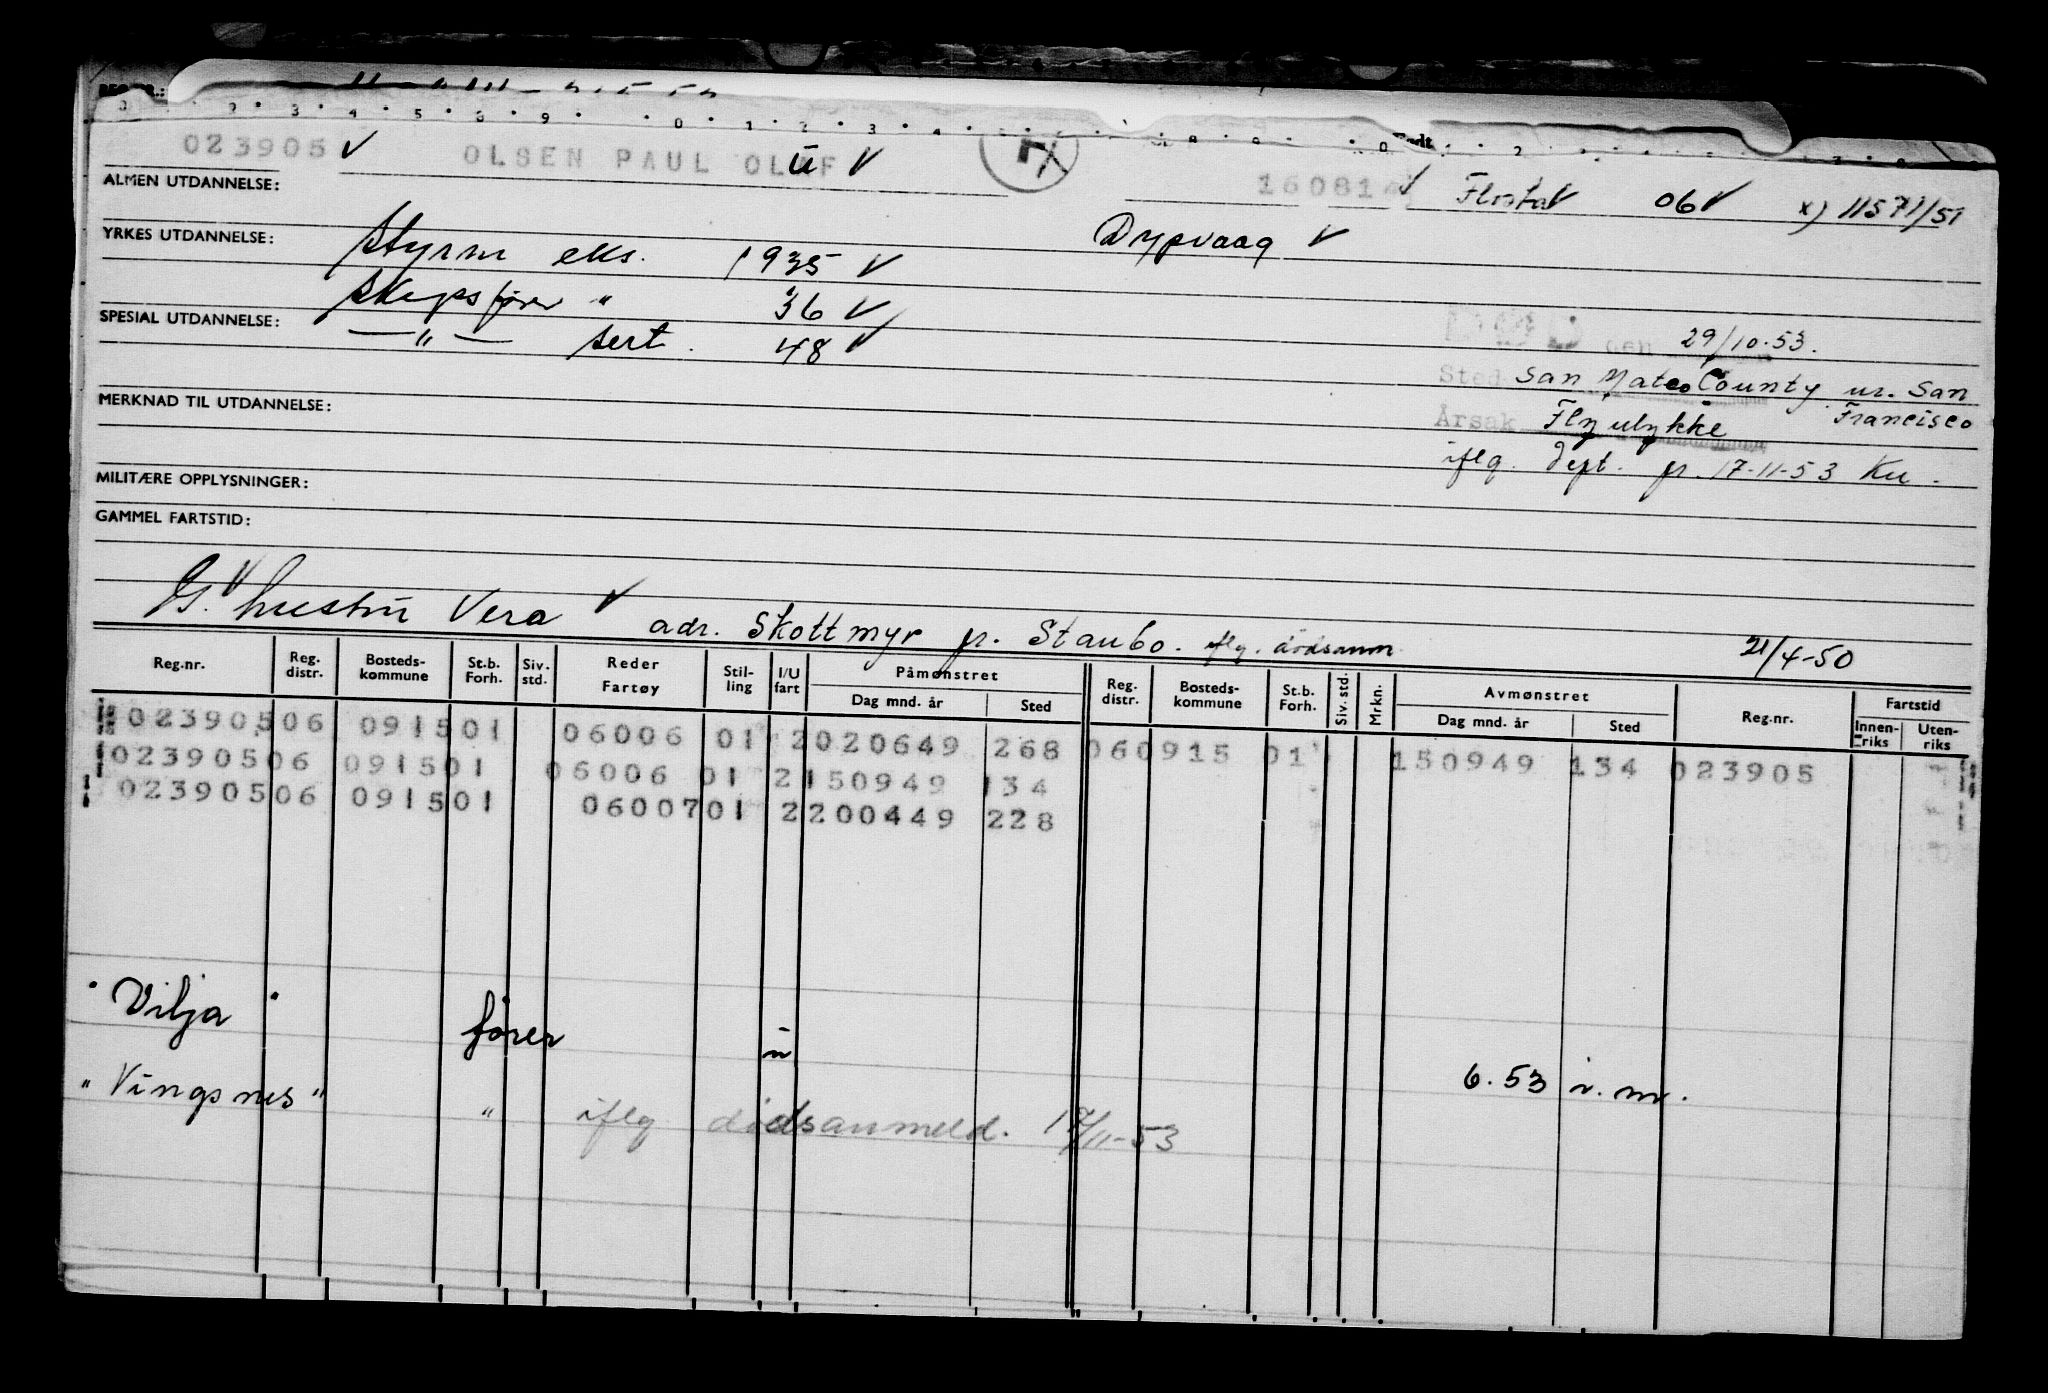 023905 ✓ OLSEN PAUL OLUF ✓ 160814 ✓ Flosta ✓ 06 ✓ x) 11571/51
ALMEN UTDANNELSE:
Dypvaag ✓
YRKES UTDANNELSE: Styrm eks. 1935 ✓
Skipsfører " 36 ✓
SPESIAL UTDANNELSE: — " — sert. 48 ✓
DØD den 29/10.53.
Sted San Mateo County nr. San Francisco
MERKNAD TIL UTDANNELSE:
Årsak Flyulykke
iflg. dept. pr. 17-11-53 Ku.
MILITÆRE OPPLYSNINGER:
GAMMEL FARTSTID:
G. hustru Vera ✓ adr. Skottmyr pr. Staubo. iflg. dødsanm. 21/4-50
Reg.nr. Reg. distr. Bosteds-kommune St.b. Forh. Siv. std. Reder Fartøy Stil-ling I/U fart Påmønstret Dag mnd. år Sted Reg. distr. Bosteds-kommune St.b. Forh. Siv. std. Mrkn. Avmønstret Dag mnd. år Sted Reg.nr. Fartstid Innen-riks Uten-riks
023905 06 0915 01 06006 01 2 020649 268 06 0915 01 150949 134 023905
023905 06 0915 01 06006 01 2 150949 134
023905 06 0915 01 06007 01 2 200449 228
"Vilja" fører u 6.53 i.m.
"Vingsnes" " iflg dødsanmeld. 17/11-53